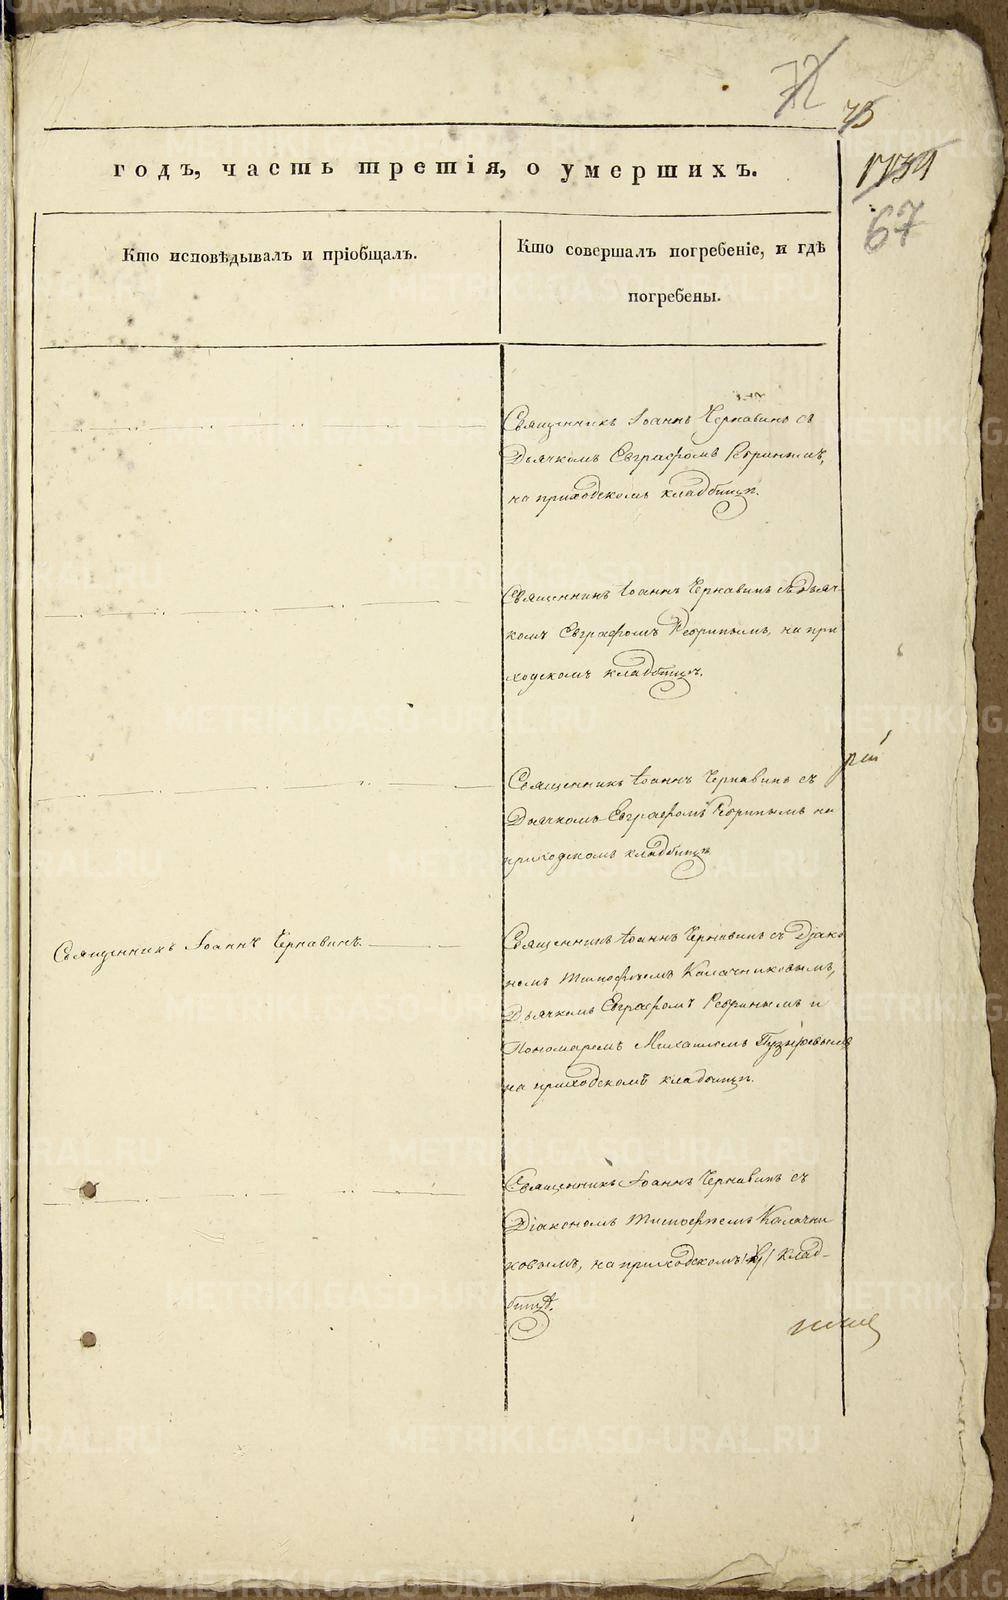 72
73
годъ, часть третія, о умершихъ.
1134
67
Кто исповѣдывалъ и пріобщалъ.
Кто совершалъ погребеніе, и гдѣ
погребены.
Священникъ Іоаннъ Чернавинъ съ
Дьячкомъ Евграфомъ Ребринымъ,
на приходскомъ кладбищѣ.
Священникъ Іоаннъ Чернавинъ съ Дьяч-
комъ Евграфомъ Ребринымъ, на при
ходскомъ кладбищѣ.
Священникъ Іоаннъ Чернавинъ съ
Дьячкомъ Евграфомъ Ребринымъ на
приходскомъ кладбищѣ
Священникъ Іоаннъ Чернавинъ.
Священникъ Іоаннъ Чернавинъ съ Діако
номъ Тимофеемъ Калачниковымъ,
Дьячкомъ Евграфомъ Ребринымъ и
Пономаремъ Михаиломъ Пузыревымъ
на приходскомъ кладбищѣ.
Священникъ Іоаннъ Чернавинъ съ
Діакономъ Тимофеемъ Калачни
ковымъ, на приходскомъ клад-
бищѣ.
METRIKI.GASO-URAL.RU